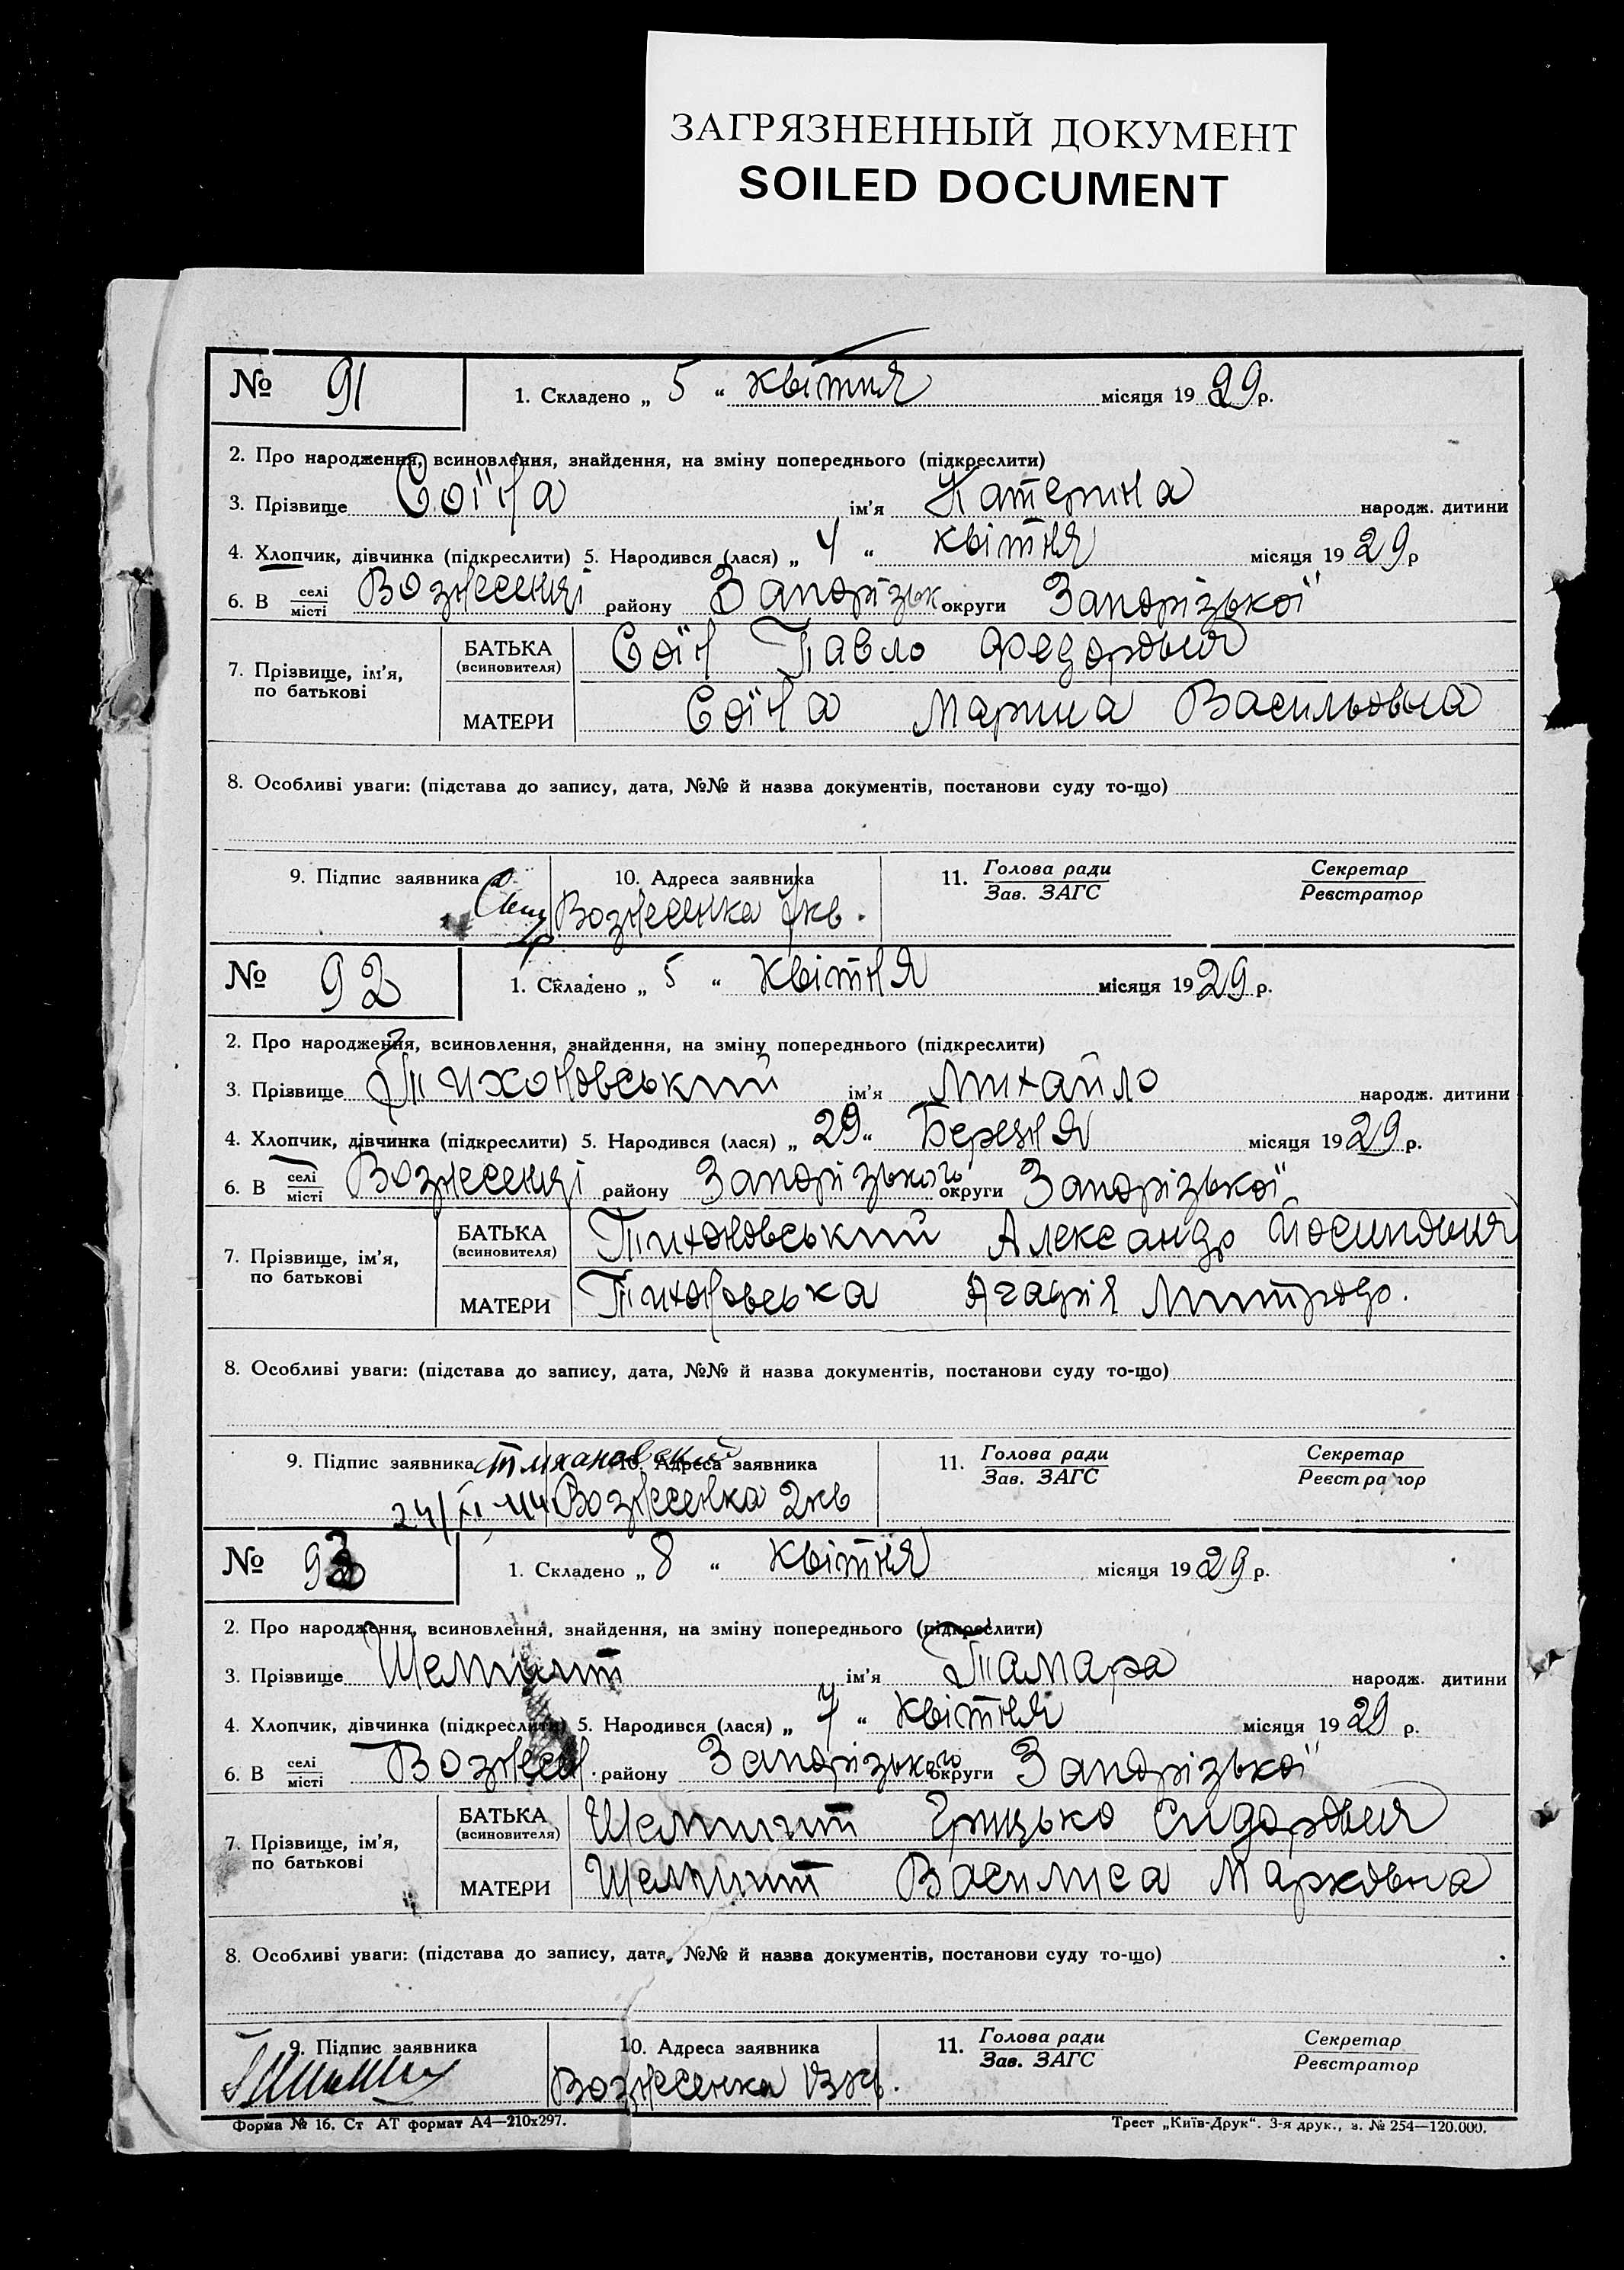 ЗАГРЯЗНЕННЫЙ ДОКУМЕНТ
SOILED DOCUMENT
№ 91 1. Складено „ 5 “ квітня місяця 1929 р.
2. Про народження, всиновлення, знайдення, на зміну попереднього (підкреслити)
3. Прізвище Соїна ім'я Катерина народж. дитини
4. Хлопчик, дівчинка (підкреслити) 5. Народився (лася) „ 4 “ квітня місяця 1929 р
6. В селі/місті Вознесенці району Запорізьк округи Запорізької
7. Прізвище, ім'я, по батькові
БАТЬКА (всиновителя) Соїн Павло Федорович
МАТЕРИ Соїна Марина Васильовна
8. Особливі уваги: (підстава до запису, дата, №№ й назва документів, постанови суду то-що)
9. Підпис заявника 10. Адреса заявника 11. Голова ради/Зав. ЗАГС Секретар/Реєстратор
Вознесенка кв.
№ 92 1. Складено „ 5 “ квітня місяця 1929 р.
2. Про народження, всиновлення, знайдення, на зміну попереднього (підкреслити)
3. Прізвище Тихоновський ім'я Михайло народж. дитини
4. Хлопчик, дівчинка (підкреслити) 5. Народився (лася) „ 29 “ Березня місяця 1929 р.
6. В селі/місті Вознесенці району Запорізького округи Запорізької
7. Прізвище, ім'я, по батькові
БАТЬКА (всиновителя) Тихоновський Александр Йосипович
МАТЕРИ Тихоновська Агафія Митрофо.
8. Особливі уваги: (підстава до запису, дата, №№ й назва документів, постанови суду то-що)
9. Підпис заявника Тихановский 10. Адреса заявника 11. Голова ради/Зав. ЗАГС Секретар/Реєстратор
24/XI 44 Вознесенка 2 кв
№ 93 1. Складено „ 8 “ квітня місяця 1929 р.
2. Про народження, всиновлення, знайдення, на зміну попереднього (підкреслити)
3. Прізвище ім'я Тамара народж. дитини
4. Хлопчик, дівчинка (підкреслити) 5. Народився (лася) „ “ квітня місяця 1929 р.
6. В селі/місті Вознесен. району Запорізького округи Запорізької
7. Прізвище, ім'я, по батькові
БАТЬКА (всиновителя) Грицько Сидорович
МАТЕРИ Василиса Марковна
8. Особливі уваги: (підстава до запису, дата, №№ й назва документів, постанови суду то-що)
9. Підпис заявника 10. Адреса заявника 11. Голова ради/Зав. ЗАГС Секретар/Реєстратор
Вознесенка кв.
Форма № 16. Ст АТ формат А4—210х297. Трест „Київ-Друк“. 3-я друк., з. № 254—120.000.